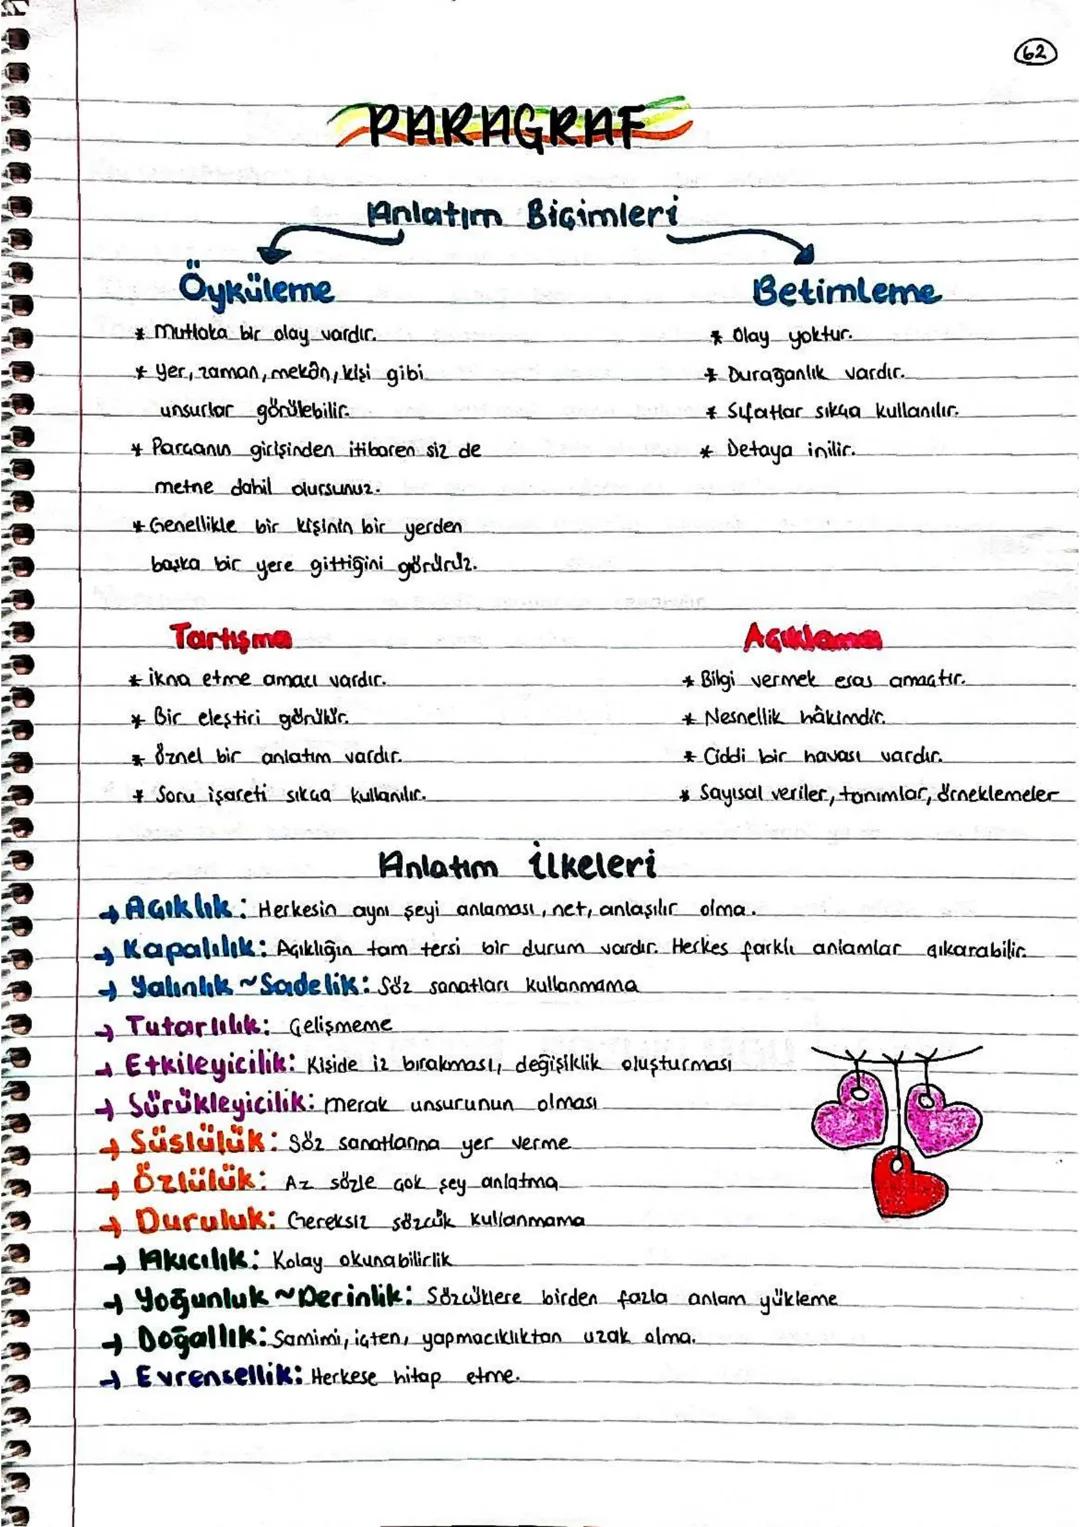 62
PARAGRAF
Anlatım Biçimleri
Öyküleme
* Mutlaka bir olay vardır.
* Yer, zaman, mekân, kişi gibi
unsurlar görülebilir.
* Parçanın girişinden itibaren siz de
metne dahil olursunuz.
* Genellikle bir kişinin bir yerden
başka bir yere gittiğini görürüz.
Betimleme
* Olay yoktur.
* Durağanlık vardır.
* Sıfatlar sıkça kullanılır.
* Detaya inilir.
Tartışma
* İkna etme amacı vardır.
* Bir eleştiri görülür.
* Öznel bir anlatım vardır.
* Soru işareti sıkça kullanılır.
Açıklama
* Bilgi vermek esas amaçtır.
* Nesnellik hâkimdir.
* Ciddi bir havası vardır.
* Sayısal veriler, tanımlar, örneklemeler
Anlatım İlkeleri
→ Açıklık: Herkesin aynı şeyi anlaması, net, anlaşılır olma.
→ Kapalılık: Açıklığın tam tersi bir durum vardır. Herkes farklı anlamlar çıkarabilir.
→ Yalınlık ~ Sadelik: Söz sanatları kullanmama
→ Tutarlılık: Çelişmeme
→ Etkileyicilik: Kişide iz bırakması, değişiklik oluşturması
→ Sürükleyicilik: Merak unsurunun olması
→ Süslülük: Söz sanatlarına yer verme
→ Özlülük: Az sözle çok şey anlatma
→ Duruluk: Gereksiz sözcük kullanmama
→ Akıcılık: Kolay okunabilirlik
→ Yoğunluk ~ Derinlik: Sözcüklere birden fazla anlam yükleme
→ Doğallık: Samimi, içten, yapmacıklıktan uzak olma.
→ Evrensellik: Herkese hitap etme.